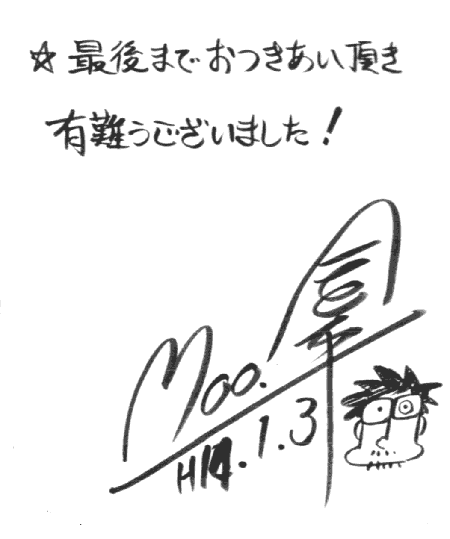 ☆最後までおつきあい頂き
有難うございました!
Moo.
H14.1.3